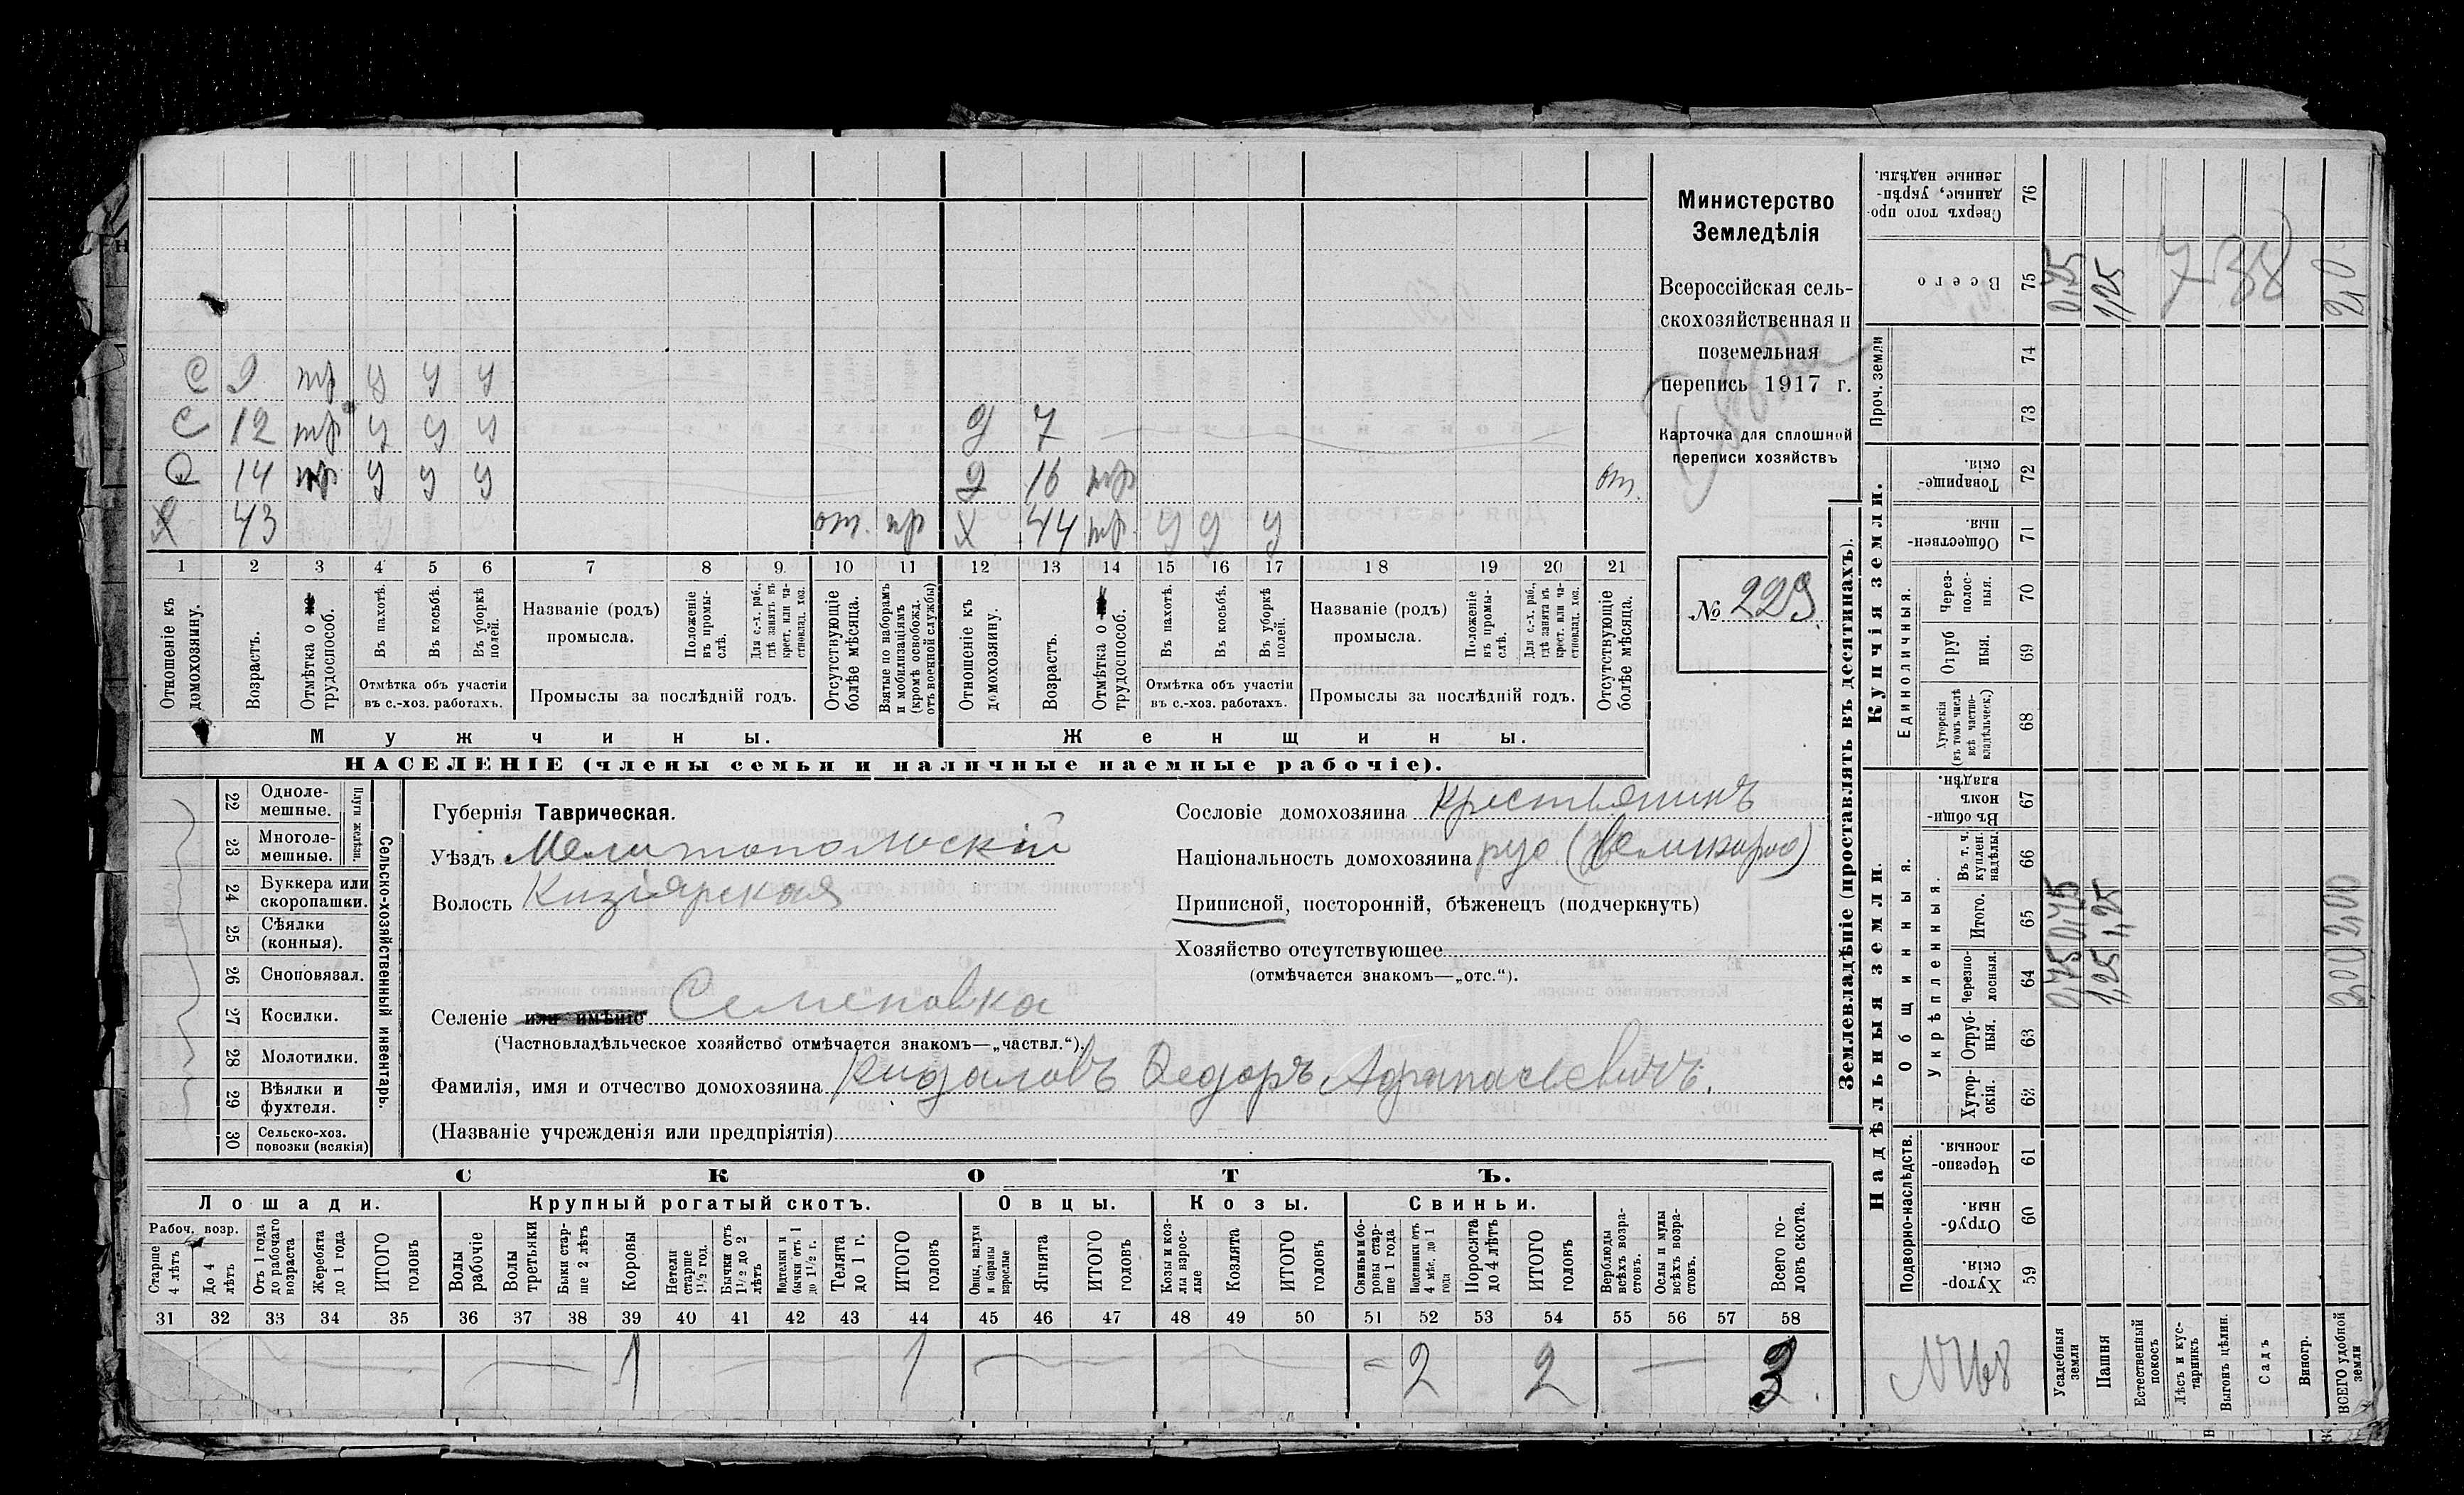 С 9 тр у у у
С 12 тр у у у Д 7
С 14 тр у у у Д 16 тр от.
Х 43 от. пр Х 44 тр. у у у
1 2 3 4 5 6 7 8 9 10 11 12 13 14 15 16 17 18 19 20 21
Отношеніе къ домохозяину.
Возрастъ.
Отмѣтка о трудоспособ.
Въ пахотѣ.
Въ косьбѣ.
Въ уборкѣ полей.
Отмѣтка объ участіи въ с.-хоз. работахъ.
Названіе (родъ) промысла.
Положеніе въ промыслѣ.
Для с.-х. раб., гдѣ занятъ въ крест. или частновлад. хоз.
Промыслы за послѣдній годъ.
Отсутствующіе болѣе мѣсяца.
Взятые по наборамъ и мобилизаціямъ (кромѣ освобожд. отъ военной службы)
Отношеніе къ домохозяину.
Возрастъ.
Отмѣтка о трудоспособ.
Въ пахотѣ.
Въ косьбѣ.
Въ уборкѣ полей.
Отмѣтка объ участіи въ с.-хоз. работахъ.
Названіе (родъ) промысла.
Положеніе въ промыслѣ.
Для с.-х. раб., гдѣ занята въ крест. или частновлад. хоз.
Промыслы за послѣдній годъ.
Отсутствующіе болѣе мѣсяца.
Мужчины. Женщины.
НАСЕЛЕНІЕ (члены семьи и наличные наемные рабочіе).
Министерство
Земледѣлія
Всероссійская сель-
скохозяйственная и
поземельная
перепись 1917 г.
Карточка для сплошной
переписи хозяйствъ
№ 229
22 Одноле-
мешные.
23 Многоле-
мешные.
Плуги желѣзн.
24 Буккера или
скоропашки.
25 Сѣялки
(конныя).
26 Сноповязал.
27 Косилки.
28 Молотилки.
29 Вѣялки и
фухтеля.
30 Сельско-хоз.
повозки (всякія)
Сельско-хозяйственный инвентарь.
Губернія Таврическая.
Уѣздъ Мелитопольскій
Волость Кизіярская
Селеніе или имѣніе Семеновка
(Частновладѣльческое хозяйство отмѣчается знакомъ—„частвл.“).
Фамилія, имя и отчество домохозяина Кидаловъ Федоръ Афанасьевичъ.
(Названіе учрежденія или предпріятія)
Сословіе домохозяина крестьянинъ
Національность домохозяина рус (великорос)
Приписной, посторонній, бѣженецъ (подчеркнуть)
Хозяйство отсутствующее
(отмѣчается знакомъ—„отс.“).
СКОТЪ.
Лошади. Крупный рогатый скотъ. Овцы. Козы. Свиньи.
Рабоч. возр.
Старше 4 лѣтъ
До 4 лѣтъ
Отъ 1 года до рабочаго возраста
Жеребята до 1 года
ИТОГО головъ
Волы рабочіе
Волы третьяки
Быки старше 2 лѣтъ
Коровы
Нетели старше 1½ год.
Бычки отъ 1½ до 2 лѣтъ
Подтелки и бычки отъ 1 до 1½ г.
Телята до 1 г.
ИТОГО головъ
Овцы, валухи и бараны взрослые
Ягнята
ИТОГО головъ
Козы и козлы взрослые
Козлята
ИТОГО головъ
Свиньи и боровы старше 1 года
Подсвинки отъ 4 мѣс. до 1 года
Поросята до 4 лѣтъ
ИТОГО головъ
Верблюды всѣхъ возрастовъ.
Ослы и мулы всѣхъ возрастовъ.
Всего головъ скота.
31 32 33 34 35 36 37 38 39 40 41 42 43 44 45 46 47 48 49 50 51 52 53 54 55 56 57 58
1 1 2 2 3
Землевладѣніе (проставлять въ десятинахъ).
Купчія земли.
Надѣльныя земли.
Сверхъ того проданные, укрѣпленные надѣлы. 76
Всего 75 0,75 1,25 2,0
738
Проч. земли 74 73
Товарищескія. 72
Общественныя. 71
Единоличныя.
Черезполосныя. 70
Отрубныя. 69
Хуторскія (въ томъ числѣ всѣ частновладѣльческ.) 68
Общинныя.
Въ общинномъ владѣн. 67
Укрѣпленныя.
Въ т. ч. куплен. надѣлы. 66
Итого. 65 0,75 1,25 2,00
Черезполосныя. 64 0,75 1,25 2,00
Отрубныя. 63
Хуторскія. 62
Подворно-наслѣдств.
Черезполосныя 61
Отрубныя. 60
Хуторскія. 59
№ 168
Усадебныя земли
Пашня
Естественный покосъ
Лѣсъ и кустарникъ
Выгонъ цѣлин.
Садъ
Виногр.
ВСЕГО удобной земли